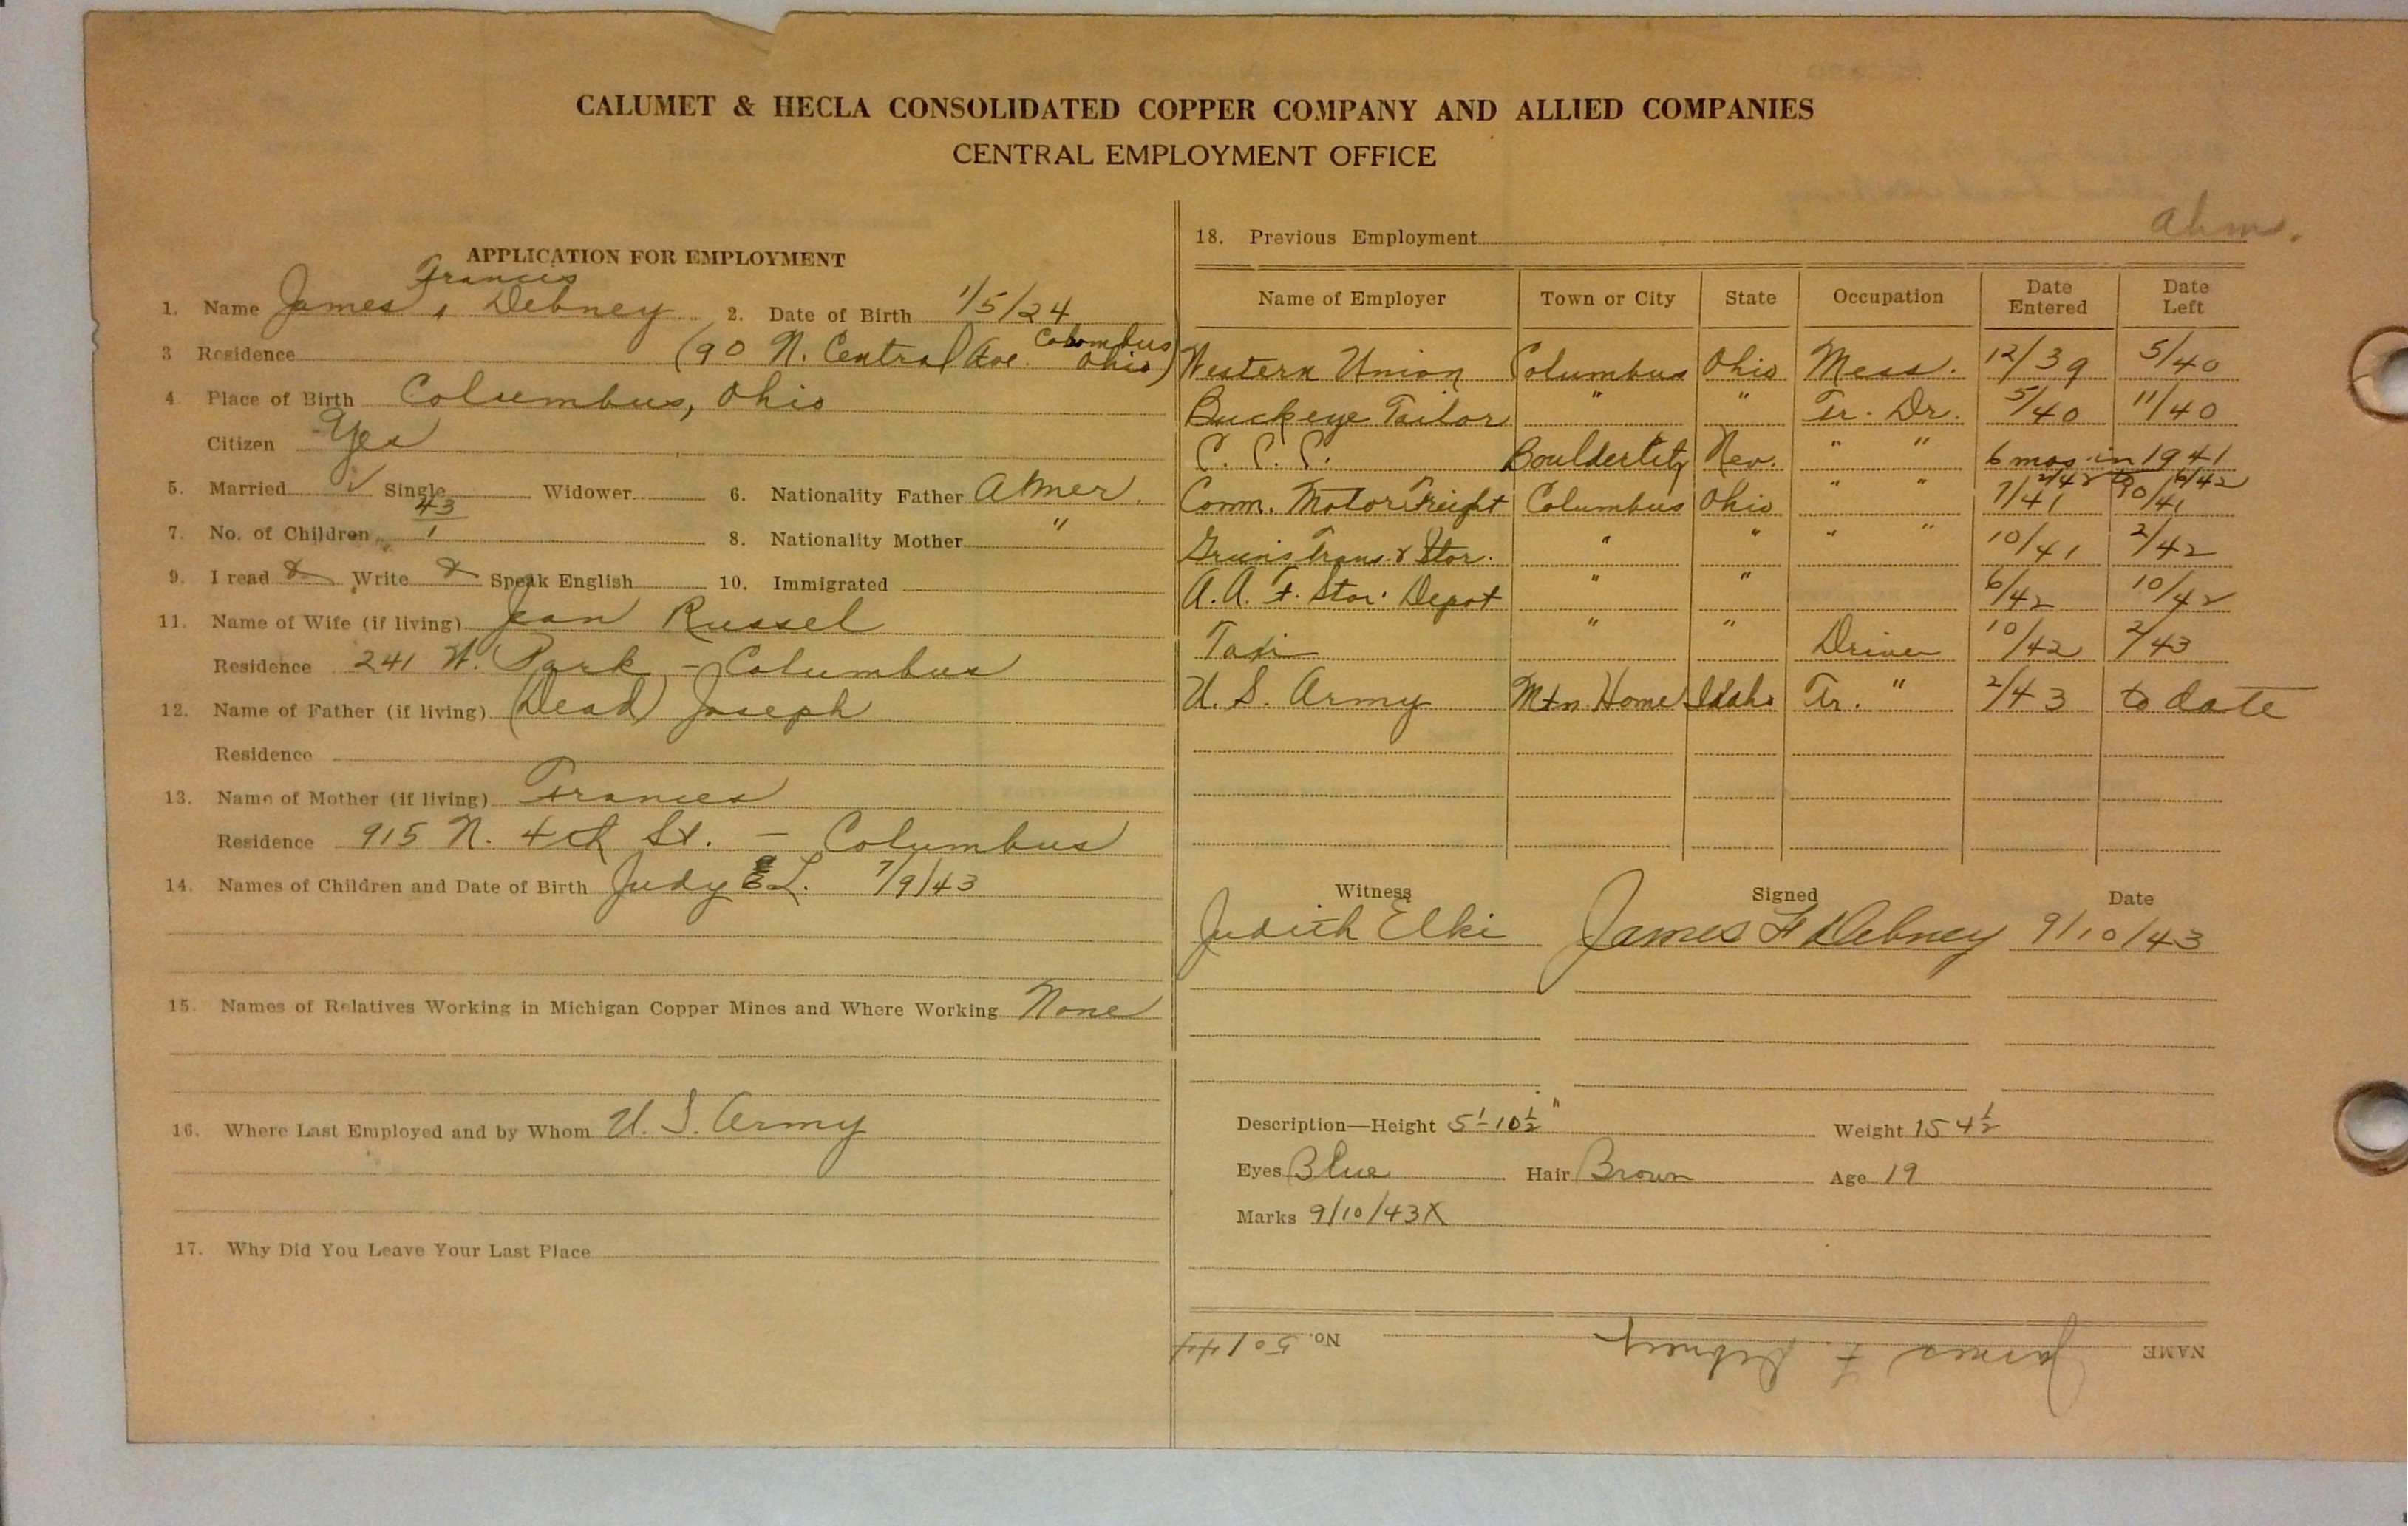 CALUMET & HECLA CONSOLIDATED COPPER COMPANY AND ALLIED COMPANIES
CENTRAL EMPLOYMENT OFFICE
APPLICATION FOR EMPLOYMENT
Francis
1. Name James Debney 2. Date of Birth 1/5/24
Columbus
3 Residence (90 N. Central Ave. Ohio)
4 Place of Birth Columbus, Ohio
Citizen Yes
5. Married ✓ Single Widower 6. Nationality Father Amer.
43
7. No. of Children 1 8. Nationality Mother "
9. I read Write Speak English 10. Immigrated
11. Name of Wife (if living) Jean Russel
Residence 241 W. Park - Columbus
12. Name of Father (if living) (Dead) Joseph
Residence
13. Name of Mother (if living) Frances
Residence 915 N. 4th St. - Columbus
14. Names of Children and Date of Birth Judy L. 7/9/43
15. Names of Relatives Working in Michigan Copper Mines and Where Working None
16. Where Last Employed and by Whom U.S. Army
17. Why Did You Leave Your Last Place
18. Previous Employment
Name of Employer Town or City State Occupation Date Entered Date Left
Western Union Columbus Ohio Mess. 12/39 5/40
Buckeye Tailor " " Tr. Dr. 5/40 11/40
C. C. C. Boulder City Nev. " " 6 mos. in 1941
2/42 to 6/42
Comm. Motor Freight Columbus Ohio " " 7/41 10/41
Trans. & Stor. " " " " 10/41 2/42
A. A. F. Stor. Depot " " 6/42 10/42
Taxi " " Driver 10/42 2/43
U. S. Army Mtn Home Idaho Tr. " 2/43 to date
Witness Signed Date
Judith Elki James F Debney 9/10/43
Description—Height 5'-10½" Weight 154½
Eyes Blue Hair Brown Age 19
Marks 9/10/43X
NAME James F. Debney No. 50144